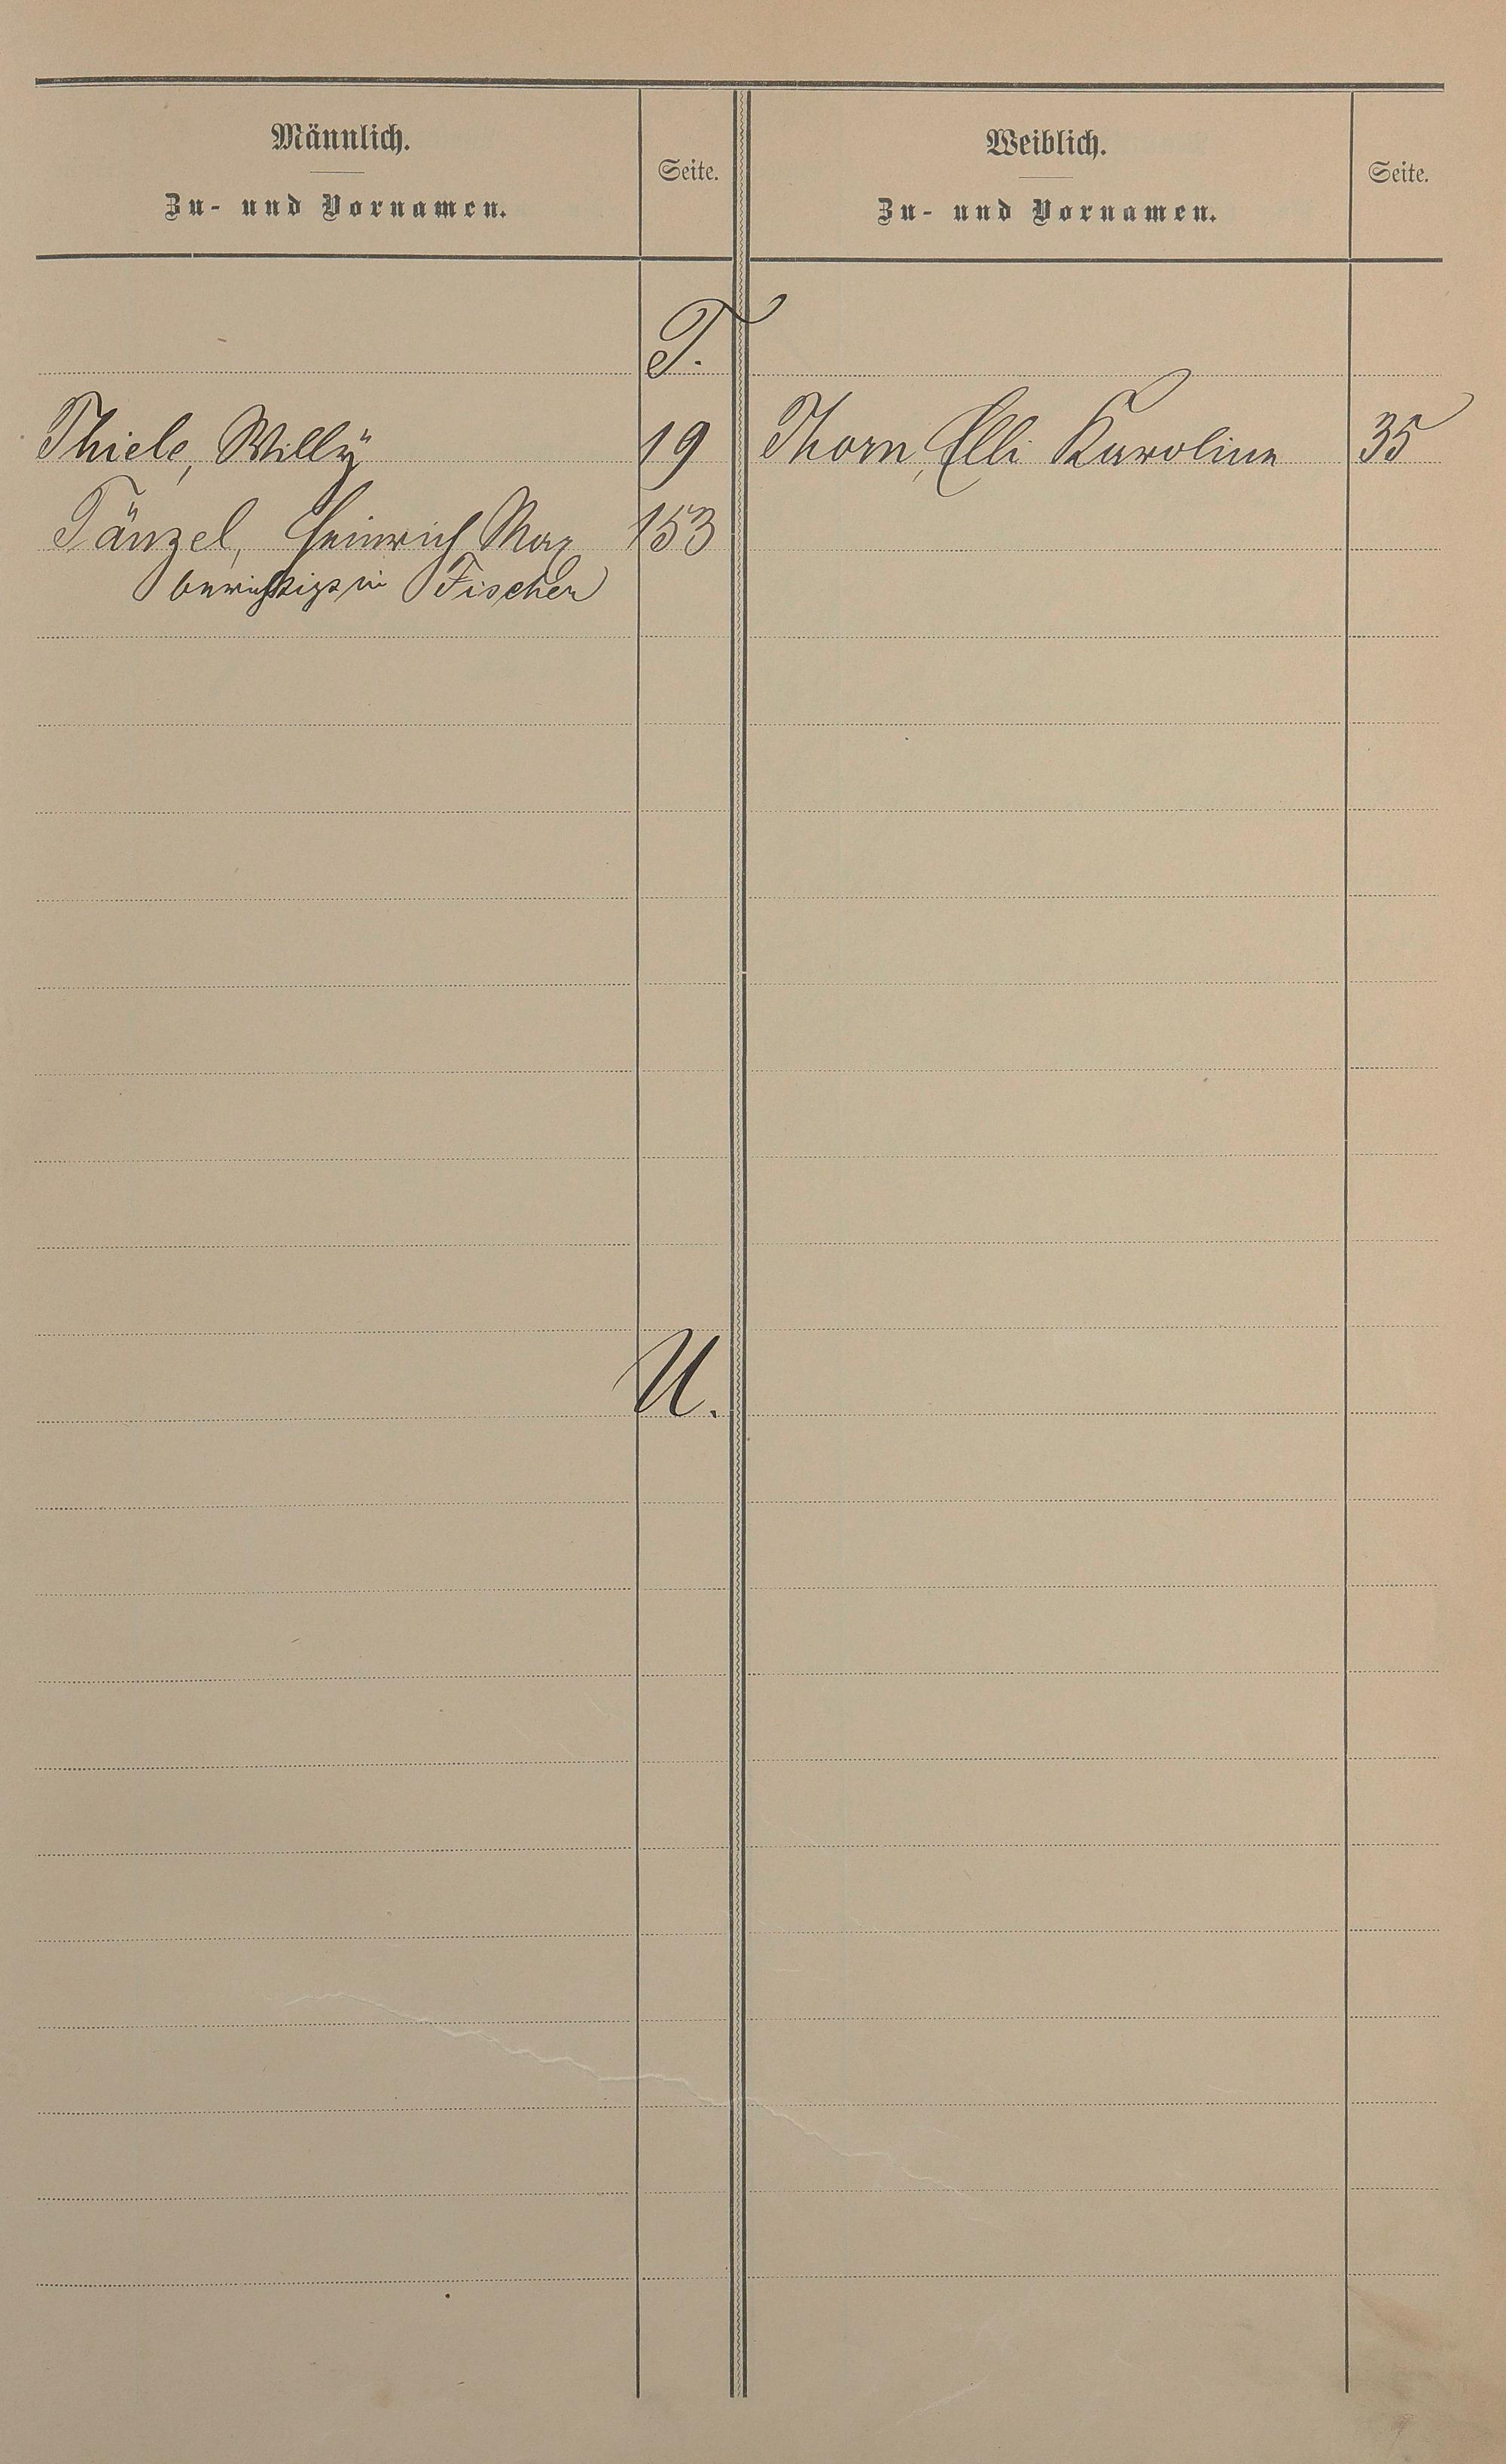 Männlich.
Zu- und Vornamen.
Seite.
Weiblich.
Zu- und Vornamen.
Seite.
T.
Thiele, Willÿ 19 Thorn, Elli Karoline 35
Tänzel, Heinrich Max 153
(berichtigt in Fischer)
U.